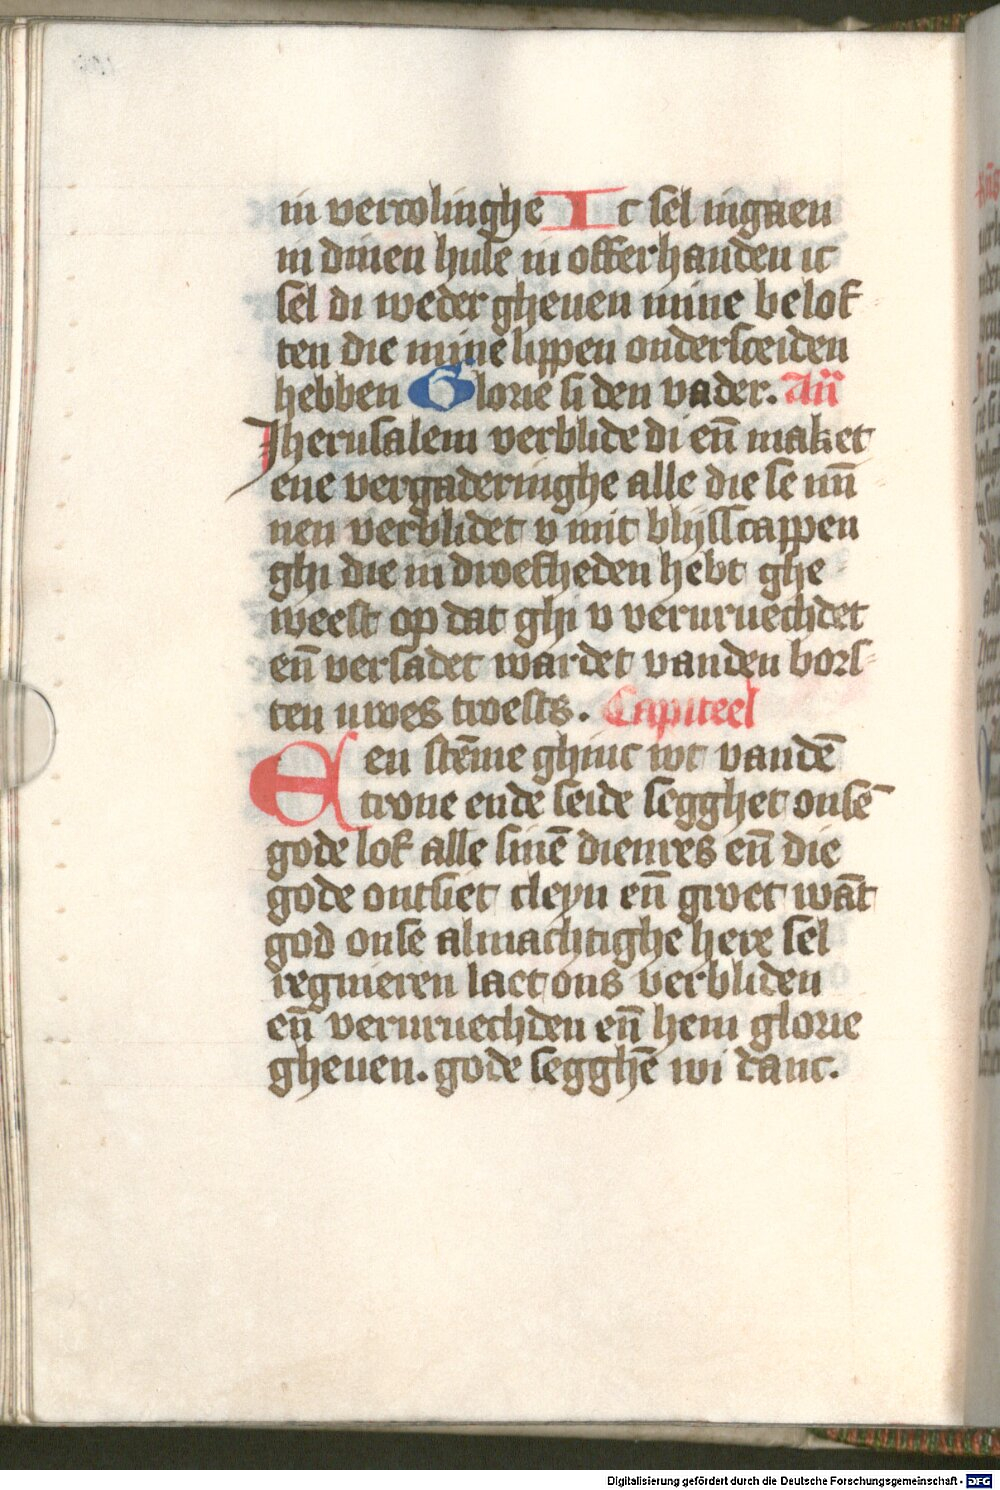 in vercolinghe Ic sel ingaen
in dinen huse in offerhanden ic
sel di weder gheuen mine belof
ten die mine lippen ondersceiden
hebben Glorie si den vader. An̄
Jherusalem verblide di en̄ maket
ene vergaderinghe alle die se min̄
nen verblidet v mit blijsscappen
ghi die in droefheden hebt ghe
weest op dat ghi v veruruechdet
en̄ versadet wardet vanden bors-
ten uwes troests. Capiteel
Een stēme ghinc wt vandē
trone ende seide segghet onsē
gode lof alle sinē dienres en̄ die
gode ontsiet cleyn en̄ groet wāt
god onse almachtighe here sel
regnieren lact ons verbliden
en̄ veruruechden en̄ hem glorie
gheuen. gode segghē wi danc.
Digitalisierung gefördert durch die Deutsche Forschungsgemeinschaft - DFG